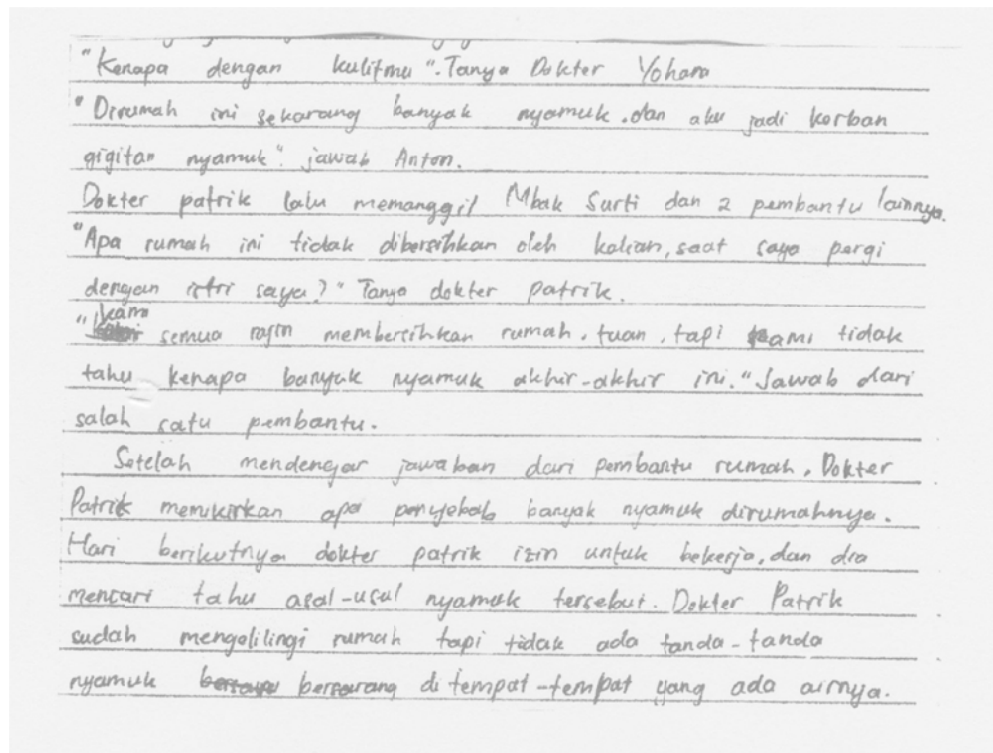 "Kenapa dengan kulitmu". Tanya Dokter Yohana
"Dirumah ini sekarang banyak nyamuk. dan aku jadi korban
gigitan nyamuk". jawab Anton.
Dokter patrik lalu memanggil Mbak Surti dan 2 pembantu lainnya.
"Apa rumah ini tidak dibersihkan oleh kalian, saat saya pergi
dengan istri saya?" Tanya dokter patrik.
"kami semua rajin membersihkan rumah, tuan, tapi kami tidak
tahu kenapa banyak nyamuk akhir-akhir ini." Jawab dari
salah satu pembantu.
Setelah mendengar jawaban dari pembantu rumah, Dokter
Patrik memikirkan apa penyebab banyak nyamuk dirumahnya.
Hari berikutnya dokter patrik izin untuk bekerja, dan dia
mencari tahu asal-usul nyamuk tersebut. Dokter Patrik
sudah mengelilingi rumah tapi tidak ada tanda-tanda
nyamuk bersarang di tempat-tempat yang ada airnya.